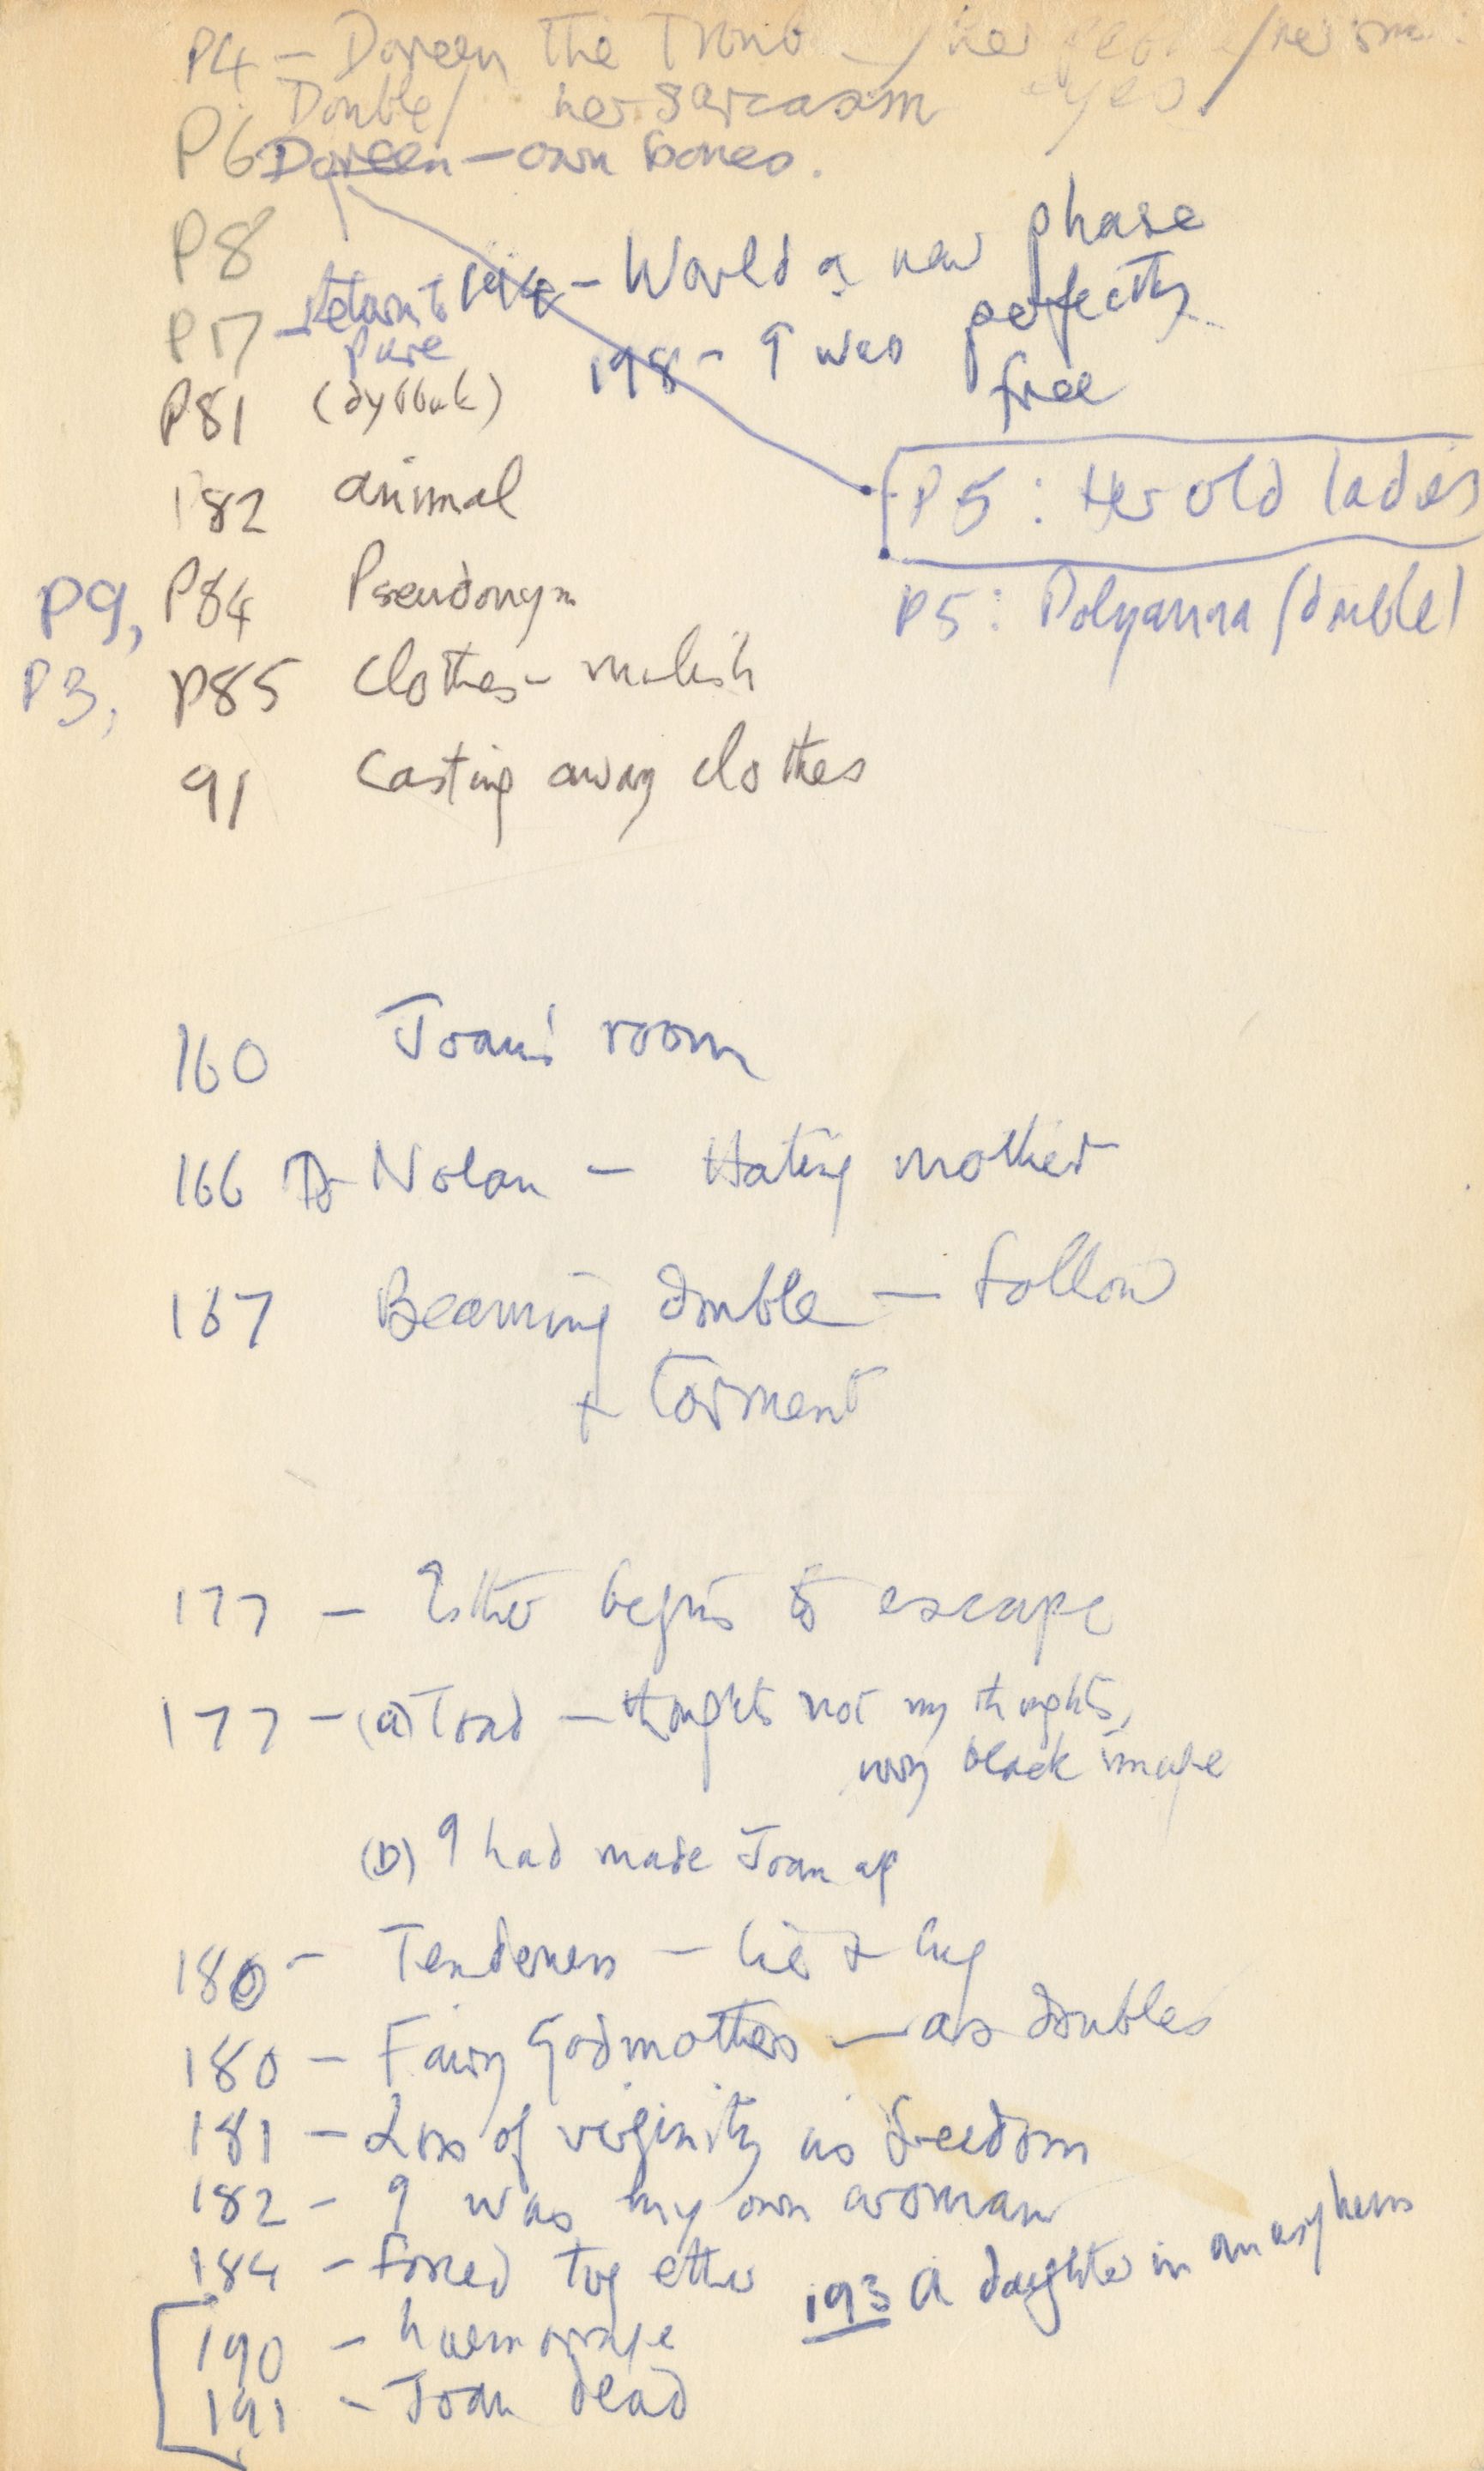 P4 - Doreen the
Double / her sarcasm eyes /
P6 Doreen - own bones.
P8
P17 - return to life - World a new phase
pure 198 - I was perfectly
P81 (dybbuk) free
182 animal P5: Her old ladies
P9, P84 Pseudonym P5: Polyanna (double)
P3, P85 Clothes - mulish
91 Casting away clothes
160 Joan's room
166 Dr Nolan - Hating mother
167 Beaming double - follow
+ torment
177 - Esther begins to escape
177 - (a) Toad - thoughts not my thoughts,
wry black image
(b) I had made Joan up
180 - Tenderness - lie + hug
180 - Fairy Godmothers - as doubles
181 - Loss of virginity as freedom
182 - I was my own woman
184 - forced together 193 A daughter in an asylum
190 - haemorrage
191 - Joan dead